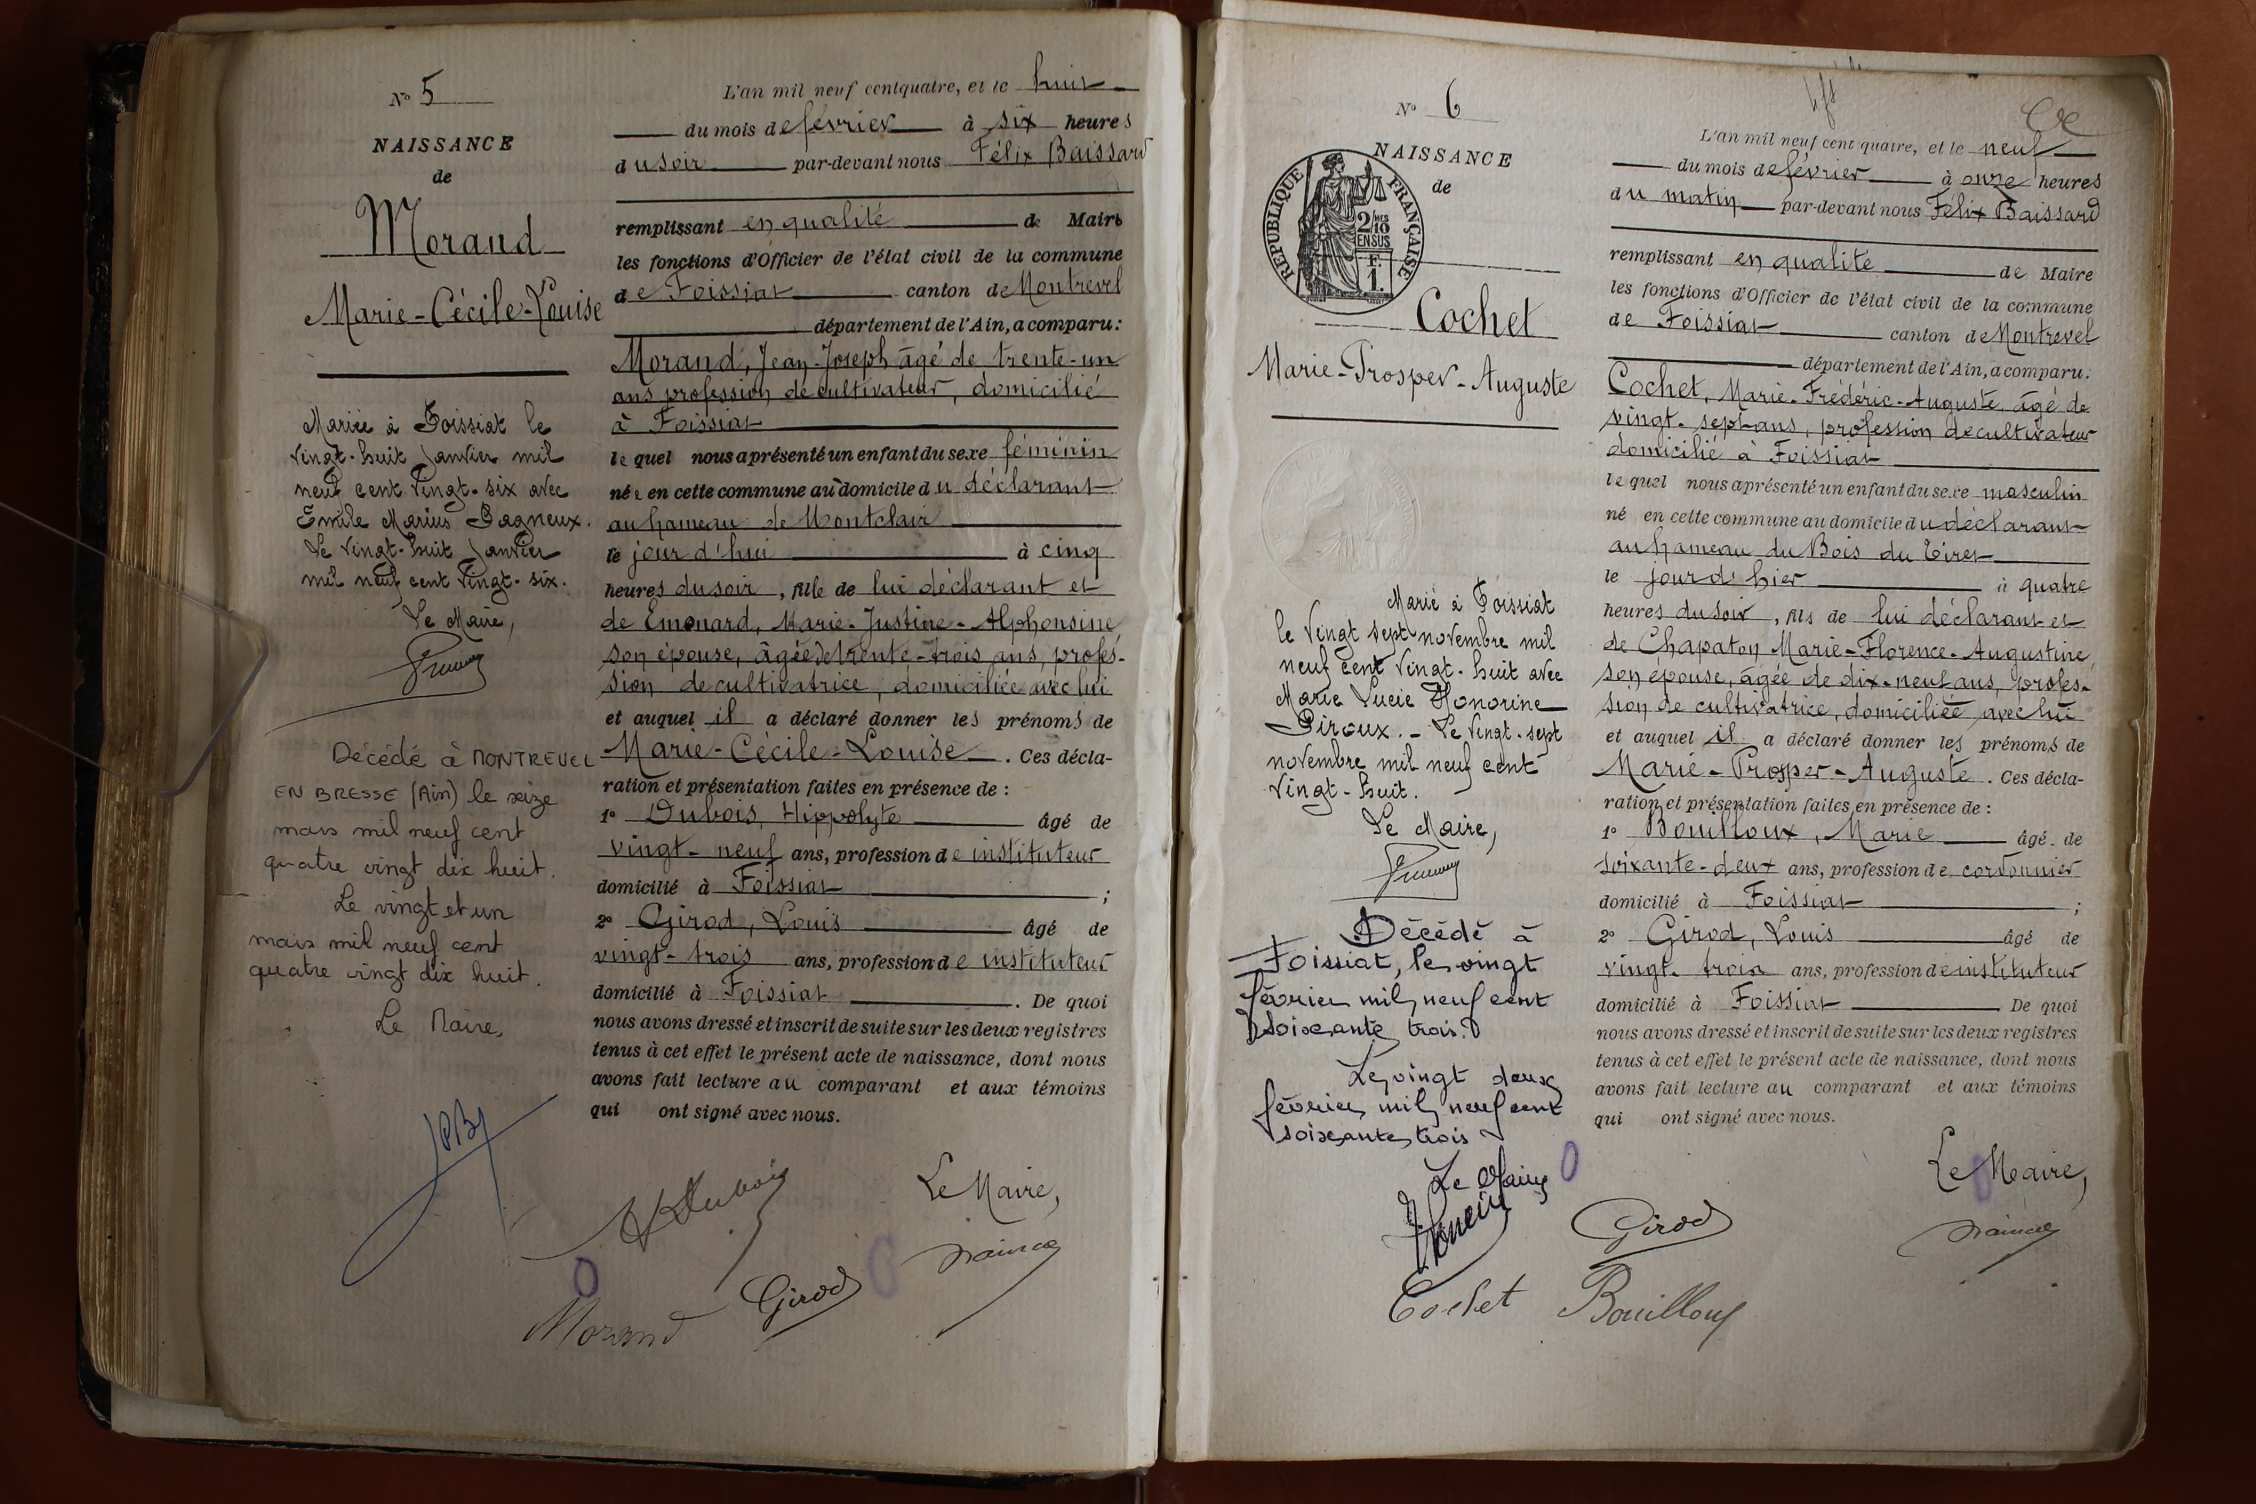 N° 5
NAISSANCE
de
Morand
Marie-Cécile-Louise
Mariée à Foissiat le
vingt-huit janvier mil
neuf cent vingt-six avec
Emile Marius Pagneux.
Le vingt-huit janvier
mil neuf cent vingt-six.
Le Maire,
Décédé à MONTREVEL
EN BRESSE (Ain) le seize
mars mil neuf cent
quatre vingt dix huit.
Le vingt et un
mars mil neuf cent
quatre vingt dix huit.
Le Maire,
L'an mil neuf cent quatre, et le huit
du mois de février à six heures
du soir par-devant nous Félix Baissard
remplissant en qualité de Maire
les fonctions d'Officier de l'état civil de la commune
de Foissiat canton de Montrevel
département de l'Ain, a comparu:
Morand, Jean-Joseph âgé de trente-un
ans profession de cultivateur, domicilié
à Foissiat
le quel nous a présenté un enfant du sexe féminin
née en cette commune au domicile du déclarant
au hameau de Montclair
le jour d'hui à cinq
heures du soir, fille de lui déclarant et
de Emonard, Marie-Justine-Alphonsine
son épouse, âgée de trente-trois ans, profes-
sion de cultivatrice, domiciliée avec lui
et auquel il a déclaré donner les prénoms de
Marie-Cécile-Louise. Ces décla-
ration et présentation faites en présence de :
1° Dubois, Hippolyte âgé de
vingt-neuf ans, profession de instituteur
domicilié à Foissiat ;
2° Girod, Louis âgé de
vingt-trois ans, profession de instituteur
domicilié à Foissiat. De quoi
nous avons dressé et inscrit de suite sur les deux registres
tenus à cet effet le présent acte de naissance, dont nous
avons fait lecture au comparant et aux témoins
qui ont signé avec nous.
Le Maire,
HDubois
Girod
Morand
N° 6
NAISSANCE
de
REPUBLIQUE FRANÇAISE
2/10 EN SUS
F. 1.
Cochet
Marie-Prosper-Auguste
Marié à Foissiat
le vingt sept novembre mil
neuf cent vingt-huit avec
Marie Lucie Honorine
Piroux. - Le vingt-sept
novembre mil neuf cent
vingt-huit.
Le Maire,
Décédé à
Foissiat, le vingt
février mil neuf cent
soixante trois.
Le vingt deux
février mil neuf cent
soixante trois
Le Maire
L'an mil neuf cent quatre, et le neuf
du mois de février à onze heures
du matin par-devant nous Félix Baissard
remplissant en qualité de Maire
les fonctions d'Officier de l'état civil de la commune
de Foissiat canton de Montrevel
département de l'Ain, a comparu:
Cochet, Marie-Frédéric-Auguste, âgé de
vingt-sept ans, profession de cultivateur
domicilié à Foissiat
le quel nous a présenté un enfant du sexe masculin
né en cette commune au domicile du déclarant
au hameau du Bois du Tiret
le jour d'hier à quatre
heures du soir, fils de lui déclarant et
de Chapaton Marie-Florence-Augustine
son épouse, âgée de dix-neuf ans, profes-
sion de cultivatrice, domiciliée avec lui
et auquel il a déclaré donner les prénoms de
Marie-Prosper-Auguste. Ces décla-
ration et présentation faites en présence de :
1° Bouilloux, Marie âgé de
soixante-deux ans, profession de cordonnier
domicilié à Foissiat ;
2° Girod, Louis âgé de
vingt-trois ans, profession de instituteur
domicilié à Foissiat De quoi
nous avons dressé et inscrit de suite sur les deux registres
tenus à cet effet le présent acte de naissance, dont nous
avons fait lecture au comparant et aux témoins
qui ont signé avec nous.
Le Maire,
Girod
Cochet Bouilloux